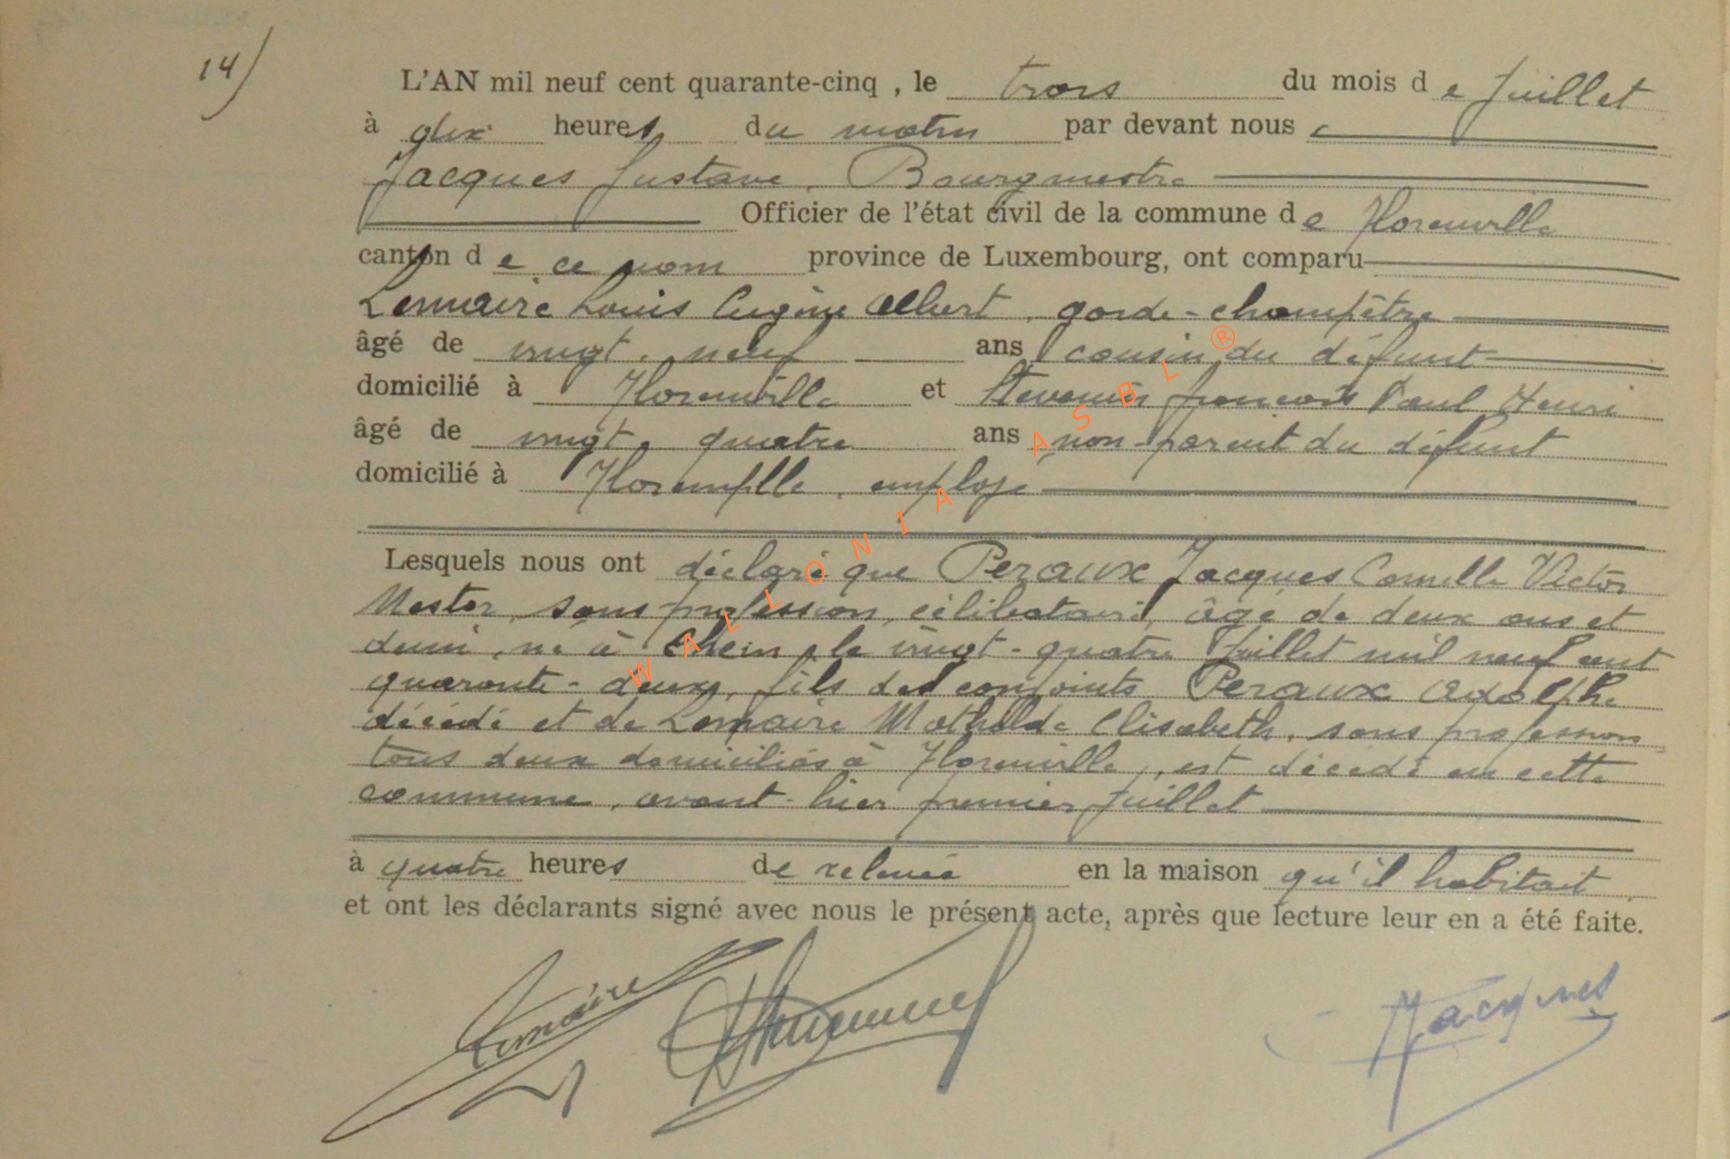 14)
L'AN mil neuf cent quarante-cinq , le trois du mois de Juillet
à dix heures du matin par devant nous
Jacques Gustave, Bourgmestre
Officier de l'état civil de la commune de Florenville
canton de ce nom province de Luxembourg, ont comparu
Lemaire Louis Eugène Albert, garde-champêtre
âgé de vingt-neuf ans cousin du défunt
domicilié à Florenville et François Paul Henri
âgé de vingt-quatre ans non-parent du défunt
domicilié à Florenville, employé
Lesquels nous ont déclaré que Peraux Jacques Camille Victor
Nestor, sans profession, célibataire, âgé de deux ans et
demi, né à le vingt-quatre Juillet mil neuf cent
quarante-deux, fils des conjoints Peraux Adolphe
décédé et de Lemaire Mathilde Elisabeth, sans profession
tous deux domiciliés à Florenville, est décédé en cette
commune, avant-hier premier Juillet
à quatre heures de relevée en la maison qu'il habitait
et ont les déclarants signé avec nous le présent acte, après que lecture leur en a été faite.
Lemaire Jacques
WALLONIA ASBL ®